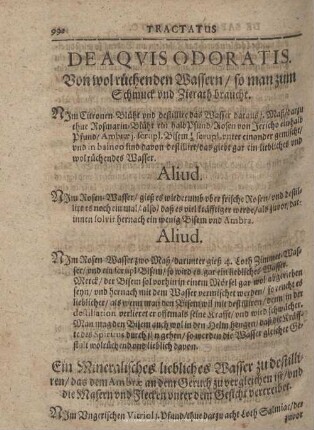 990. TRACTATUS
DE AQVIS ODORATIS.
Von wol rüchenden Wassern / so man zum
Schmuck vnd Zierath braucht.
NIm Citronen Blüht vnd destillier das Wasser daraus
thue Rosmarin-Blüht ein halb Pfund / Rosen von Jericho
Pfund / Ambræ vnter einander gemischt /
vnd in balneo destillier / das gibt gar ein liebliches vnd
wolrüchendes Wasser.
Aliud.
NIm Rosen-Wasser / gieß es wiederumb vber frische Rosen / vnd destil-
lier es noch einmal / also / daß es viel kräfftiger werde / als zuvor / dar-
innen solvir hernach ein wenig Bisem vnd Ambra.
Aliud.
NIm Rosen-Wasser zwo Maß / darunter gieß 4. Loth Zimmet-Was-
ser / vnd ein Bisem / so wird es gar ein liebliches Wasser.
Merck / der Bisem sol vorhin in einem Mörsel gar wol abgerieben
seyn / vnd hernach mit dem Wasser vermischet werden / so riecht es
lieblicher / als wenn man den Bisem wil mit destilliren / denn in der
destillation verlieret er offtmals seine Krafft / vnd wird schwächer.
Man mag den Bisem auch wol in den Helm hengen / daß die Kräffte
des Spiritus durch jhn gehen / so werden die Wasser gleicher Ge-
stalt wolrüchend vnd lieblich davon.
Ein Mineralisches liebliches Wasser zu destilli-
ren / das dem Ambræ an dem Geruch zu vergleichen ist / vnd
die Masern vnd Flecken vnter dem Gesicht vertreibet.
NIm Vngerischen Vitriol Pfund / thue darzu acht Loth Salmiac / der
zuvor